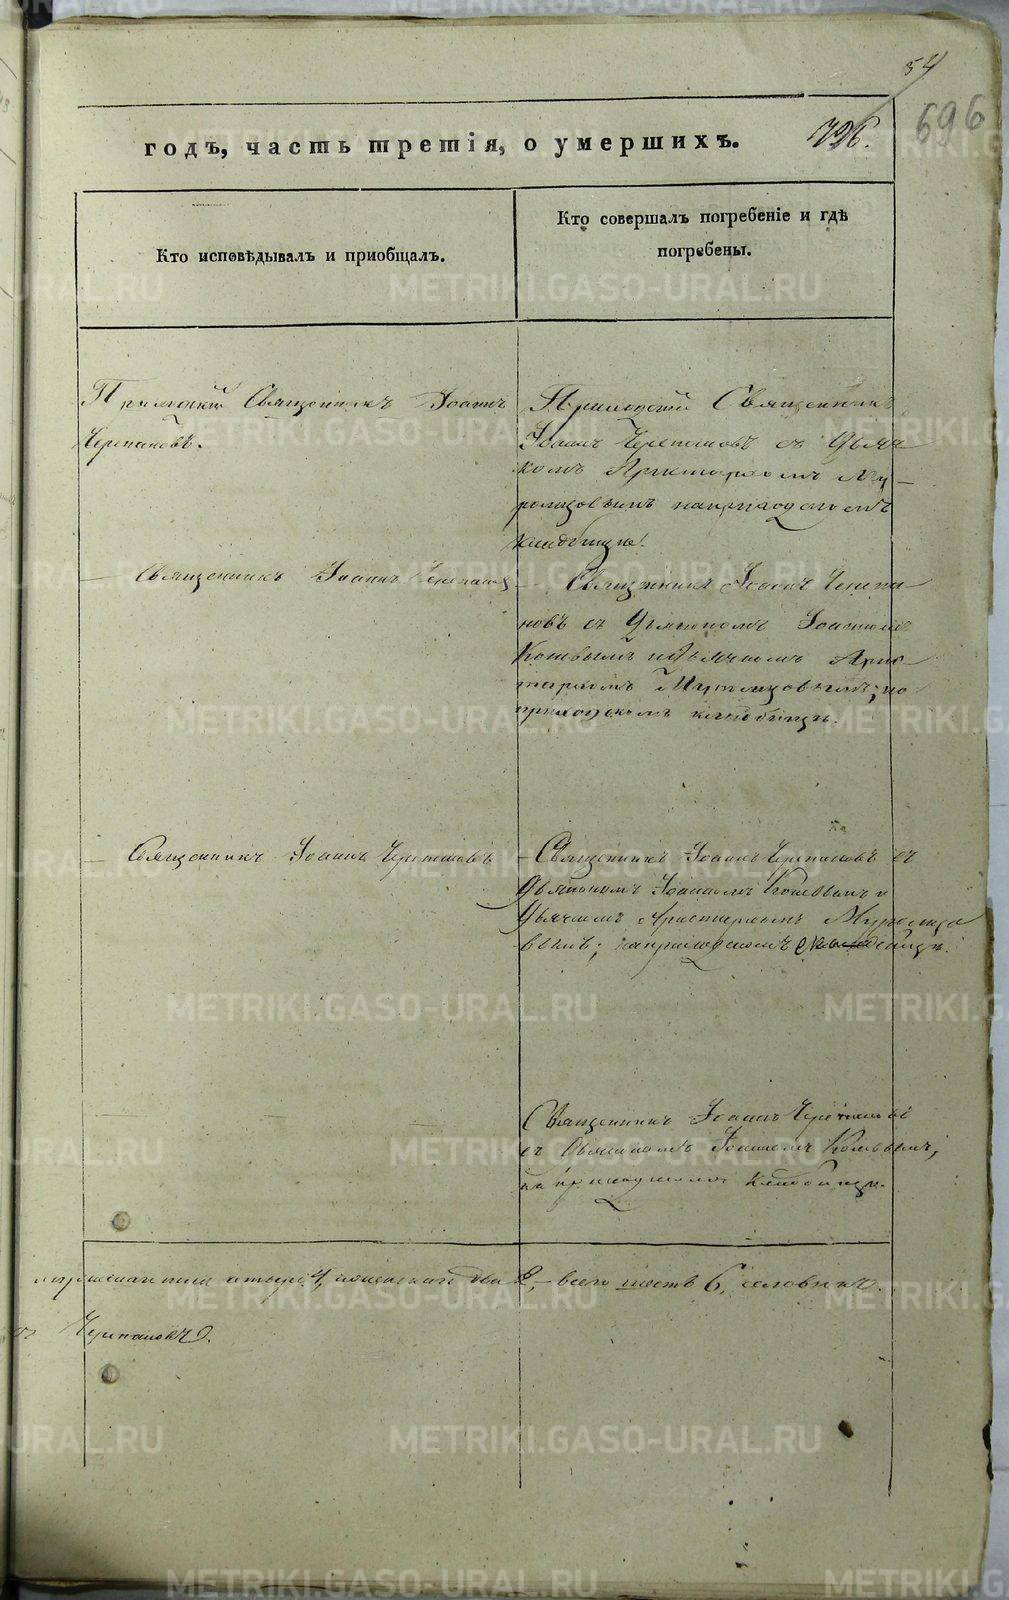 54
696
годъ, часть третія, о умершихъ.
796.
Кто исповѣдывалъ и приобщалъ.
Кто совершалъ погребеніе и гдѣ
погребены.
Приходскій Священникъ Іоаннъ
Черепановъ.
Приходскій Священникъ
Іоаннъ Черепановъ съ Дьяч
комъ Аристархомъ Му-
ромцовымъ на приходскомъ
кладбищѣ.
— Священникъ Іоаннъ Черепановъ
— Священникъ Іоаннъ Черепа
новъ съ Дьякономъ Іоанномъ
и Дьячкомъ Арис
тархомъ Муромцовымъ; на
приходскомъ кладбищѣ.
— Священникъ Іоаннъ Черепановъ
— Священникъ Іоаннъ Черепановъ съ
Дьякономъ Іоанномъ и
Дьячкомъ Аристархомъ Муромцо
вымъ; на приходскомъ кладбищѣ.
Священникъ Іоаннъ Черепановъ
съ Дьякономъ Іоанномъ
на приходскомъ кладбищѣ.
четыре 4, женскаго два 2, — всего шесть 6, человѣкъ.
Черепановъ.
METRIKI.GASO-URAL.RU